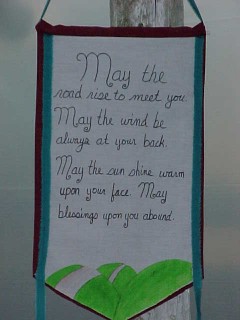 May the
road rise to meet you.
May the wind be
always at your back.
May the sun shine warm
upon your face. May
blessings upon you abound.